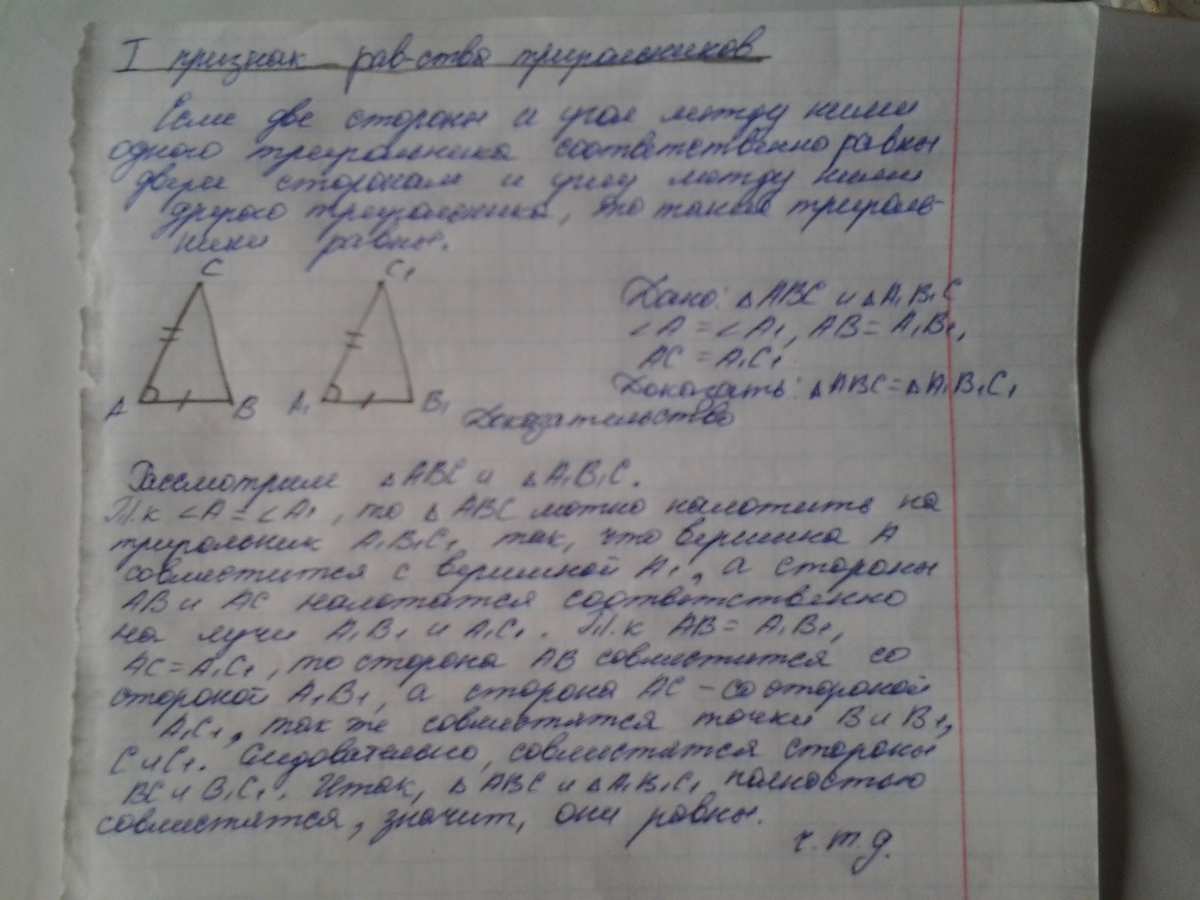 I признак рав-ства треугольников
Если две стороны и угол между ними
одного треугольника соответственно равны
двум сторонам и углу между ними
другого треугольника, то такие треуголь-
ники равны.
C C₁
Дано: △ABC и △A₁B₁C
∠A = ∠A₁, AB = A₁B₁,
AC = A₁C₁
Доказать: △ABC = △A₁B₁C₁
A B A₁ B₁
Доказательство
Рассмотрим △ABC и △A₁B₁C.
Т.к ∠A = ∠A₁, то △ABC можно наложить на
треугольник A₁B₁C₁ так, что вершина A
совместится с вершиной A₁, а стороны
AB и AC наложатся соответственно
на лучи A₁B₁ и A₁C₁. Т.к AB = A₁B₁,
AC = A₁C₁, то сторона AB совместится со
стороной A₁B₁, а сторона AC - со стороной
A₁C₁, так же совместятся точки B и B₁,
C и C₁. Следовательно, совместятся стороны
BC и B₁C₁. Итак, △ABC и △A₁B₁C₁ полностью
совместятся, значит, они равны.
ч.т.д.